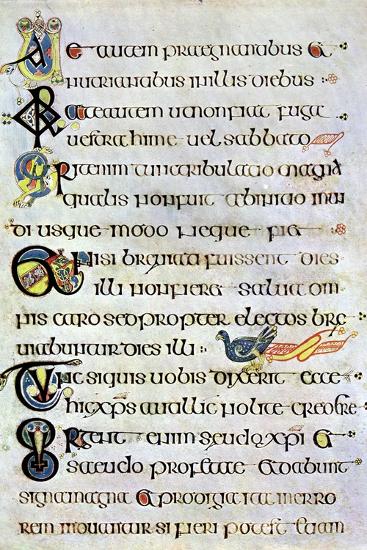 Uae autem praegnantibus et
nutrientibus in illis diebus
Orate autem ut non fiat fuga
uestra hieme uel sabbato
Erit enim tunc tribulatio magna
qualis non fuit ab initio mun
di usque modo neque fiet
et nisi breuiati fuissent dies
illi non fieret salua om
nis caro sed propter electos bre
uiabuntur dies illi
Tunc si quis uobis dixerit ecce
hic xps aut illic nolite credere
Surgent enim seudo xpi et
seudo profetae et dabunt
signa magna et prodigia ita in erro
rem moueantur si fieri potest etiam